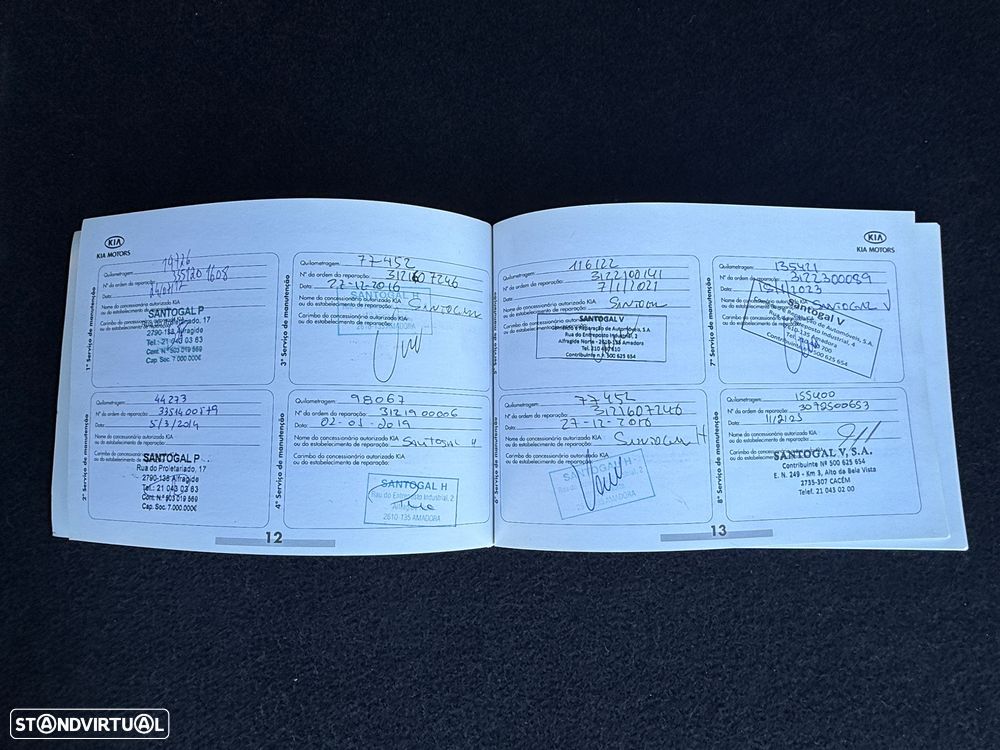 KIA
KIA MOTORS
1º Serviço de manutenção
Quilometragem: 19726
Nº da ordem da reparação: 335120 1608
Data:
Nome do concessionário autorizado KIA
ou do estabelecimento de reparação:
Carimbo do concessionário autorizado KIA
ou do estabelecimento de reparação:
SANTOGAL P
Rua do Proletariado, 17
2790-138 Alfragide
Tel.: 21 043 03 63
Cont. Nº 503 019 569
Cap. Soc. 7.000.000€
2º Serviço de manutenção
Quilometragem: 44273
Nº da ordem da reparação: 3351400579
Data: 5/3/2014
Nome do concessionário autorizado KIA
ou do estabelecimento de reparação:
Carimbo do concessionário autorizado KIA
ou do estabelecimento de reparação:
SANTOGAL P
Rua do Proletariado, 17
2790-138 Alfragide
Tel.: 21 043 03 63
Cont. Nº 503 019 569
Cap. Soc. 7.000.000€
3º Serviço de manutenção
Quilometragem: 77452
Nº da ordem da reparação: 3121607246
Data: 27-12-2016
Nome do concessionário autorizado KIA
ou do estabelecimento de reparação:
Carimbo do concessionário autorizado KIA
ou do estabelecimento de reparação:
SANTOGAL H
2610-135 AMADORA
4º Serviço de manutenção
Quilometragem: 98067
Nº da ordem da reparação: 3121900006
Data: 02-01-2019
Nome do concessionário autorizado KIA
ou do estabelecimento de reparação: Santogal H
Carimbo do concessionário autorizado KIA
ou do estabelecimento de reparação:
SANTOGAL H
Rua do Entreposto Industrial, 2
Alfragide
2610-135 AMADORA
12
5º Serviço de manutenção
Quilometragem: 116122
Nº da ordem da reparação: 3122100141
Data: 7/1/2021
Nome do concessionário autorizado KIA
ou do estabelecimento de reparação: Santogal
Carimbo do concessionário autorizado KIA
ou do estabelecimento de reparação:
SANTOGAL V
Comércio e Reparação de Automóveis, S.A.
Rua do Entreposto Industrial, 2
Alfragide Norte - 2610-135 Amadora
Contribuinte n.º 500 625 654
6º Serviço de manutenção
Quilometragem: 77452
Nº da ordem da reparação: 3121607246
Data: 27-12-2016
Nome do concessionário autorizado KIA
ou do estabelecimento de reparação: Santogal H
Carimbo do concessionário autorizado KIA
ou do estabelecimento de reparação:
SANTOGAL H
2610-135 AMADORA
KIA
KIA MOTORS
7º Serviço de manutenção
Quilometragem: 135421
Nº da ordem da reparação: 3122300089
Nome do concessionário autorizado KIA
ou do estabelecimento de reparação: Santogal V
Carimbo do concessionário autorizado KIA
ou do estabelecimento de reparação:
Santogal V
Rua do Entreposto Industrial, 4
500 625 654
8º Serviço de manutenção
Quilometragem: 155400
Nº da ordem da reparação: 3092500653
Data:
Nome do concessionário autorizado KIA
ou do estabelecimento de reparação:
Carimbo do concessionário autorizado KIA
ou do estabelecimento de reparação:
SANTOGAL V, S.A.
Contribuinte Nº 500 625 654
E. N. 249 - Km 3, Alto da Bela Vista
2735-307 CACÉM
Telef. 21 043 02 00
13
STANDVIRTUAL